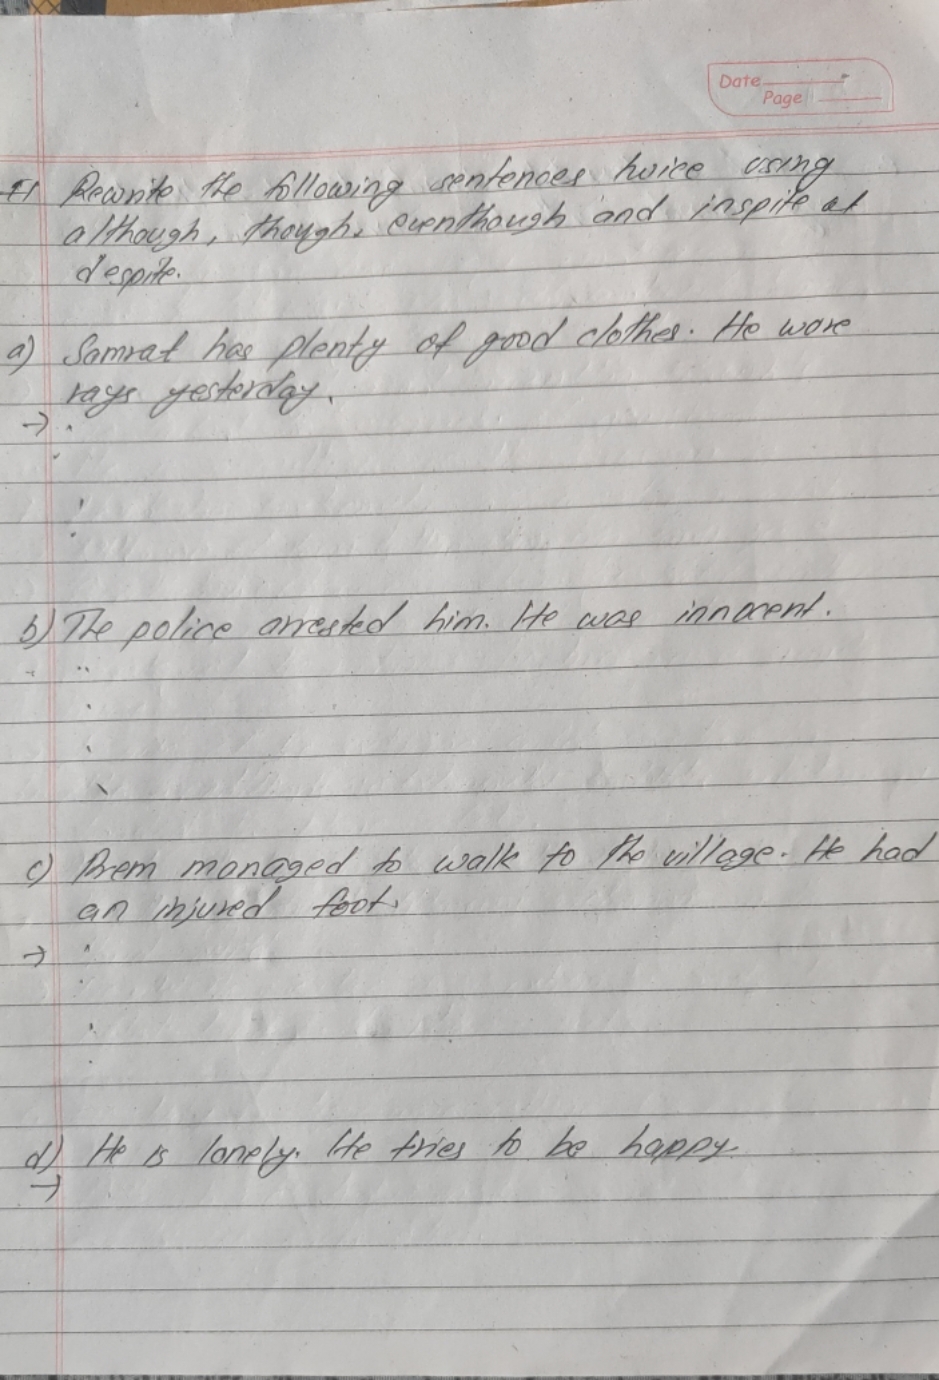 Date
Page
Rewrite the following sentences twice using
although, though, eventhough and inspite of
despite.
a) Samrat has plenty of good clothes. He wore
rags yesterday.
→
b) The police arrested him. He was innocent.
c) Prem managed to walk to the village. He had
an injured foot.
→
d) He is lonely. He tries to be happy.
→